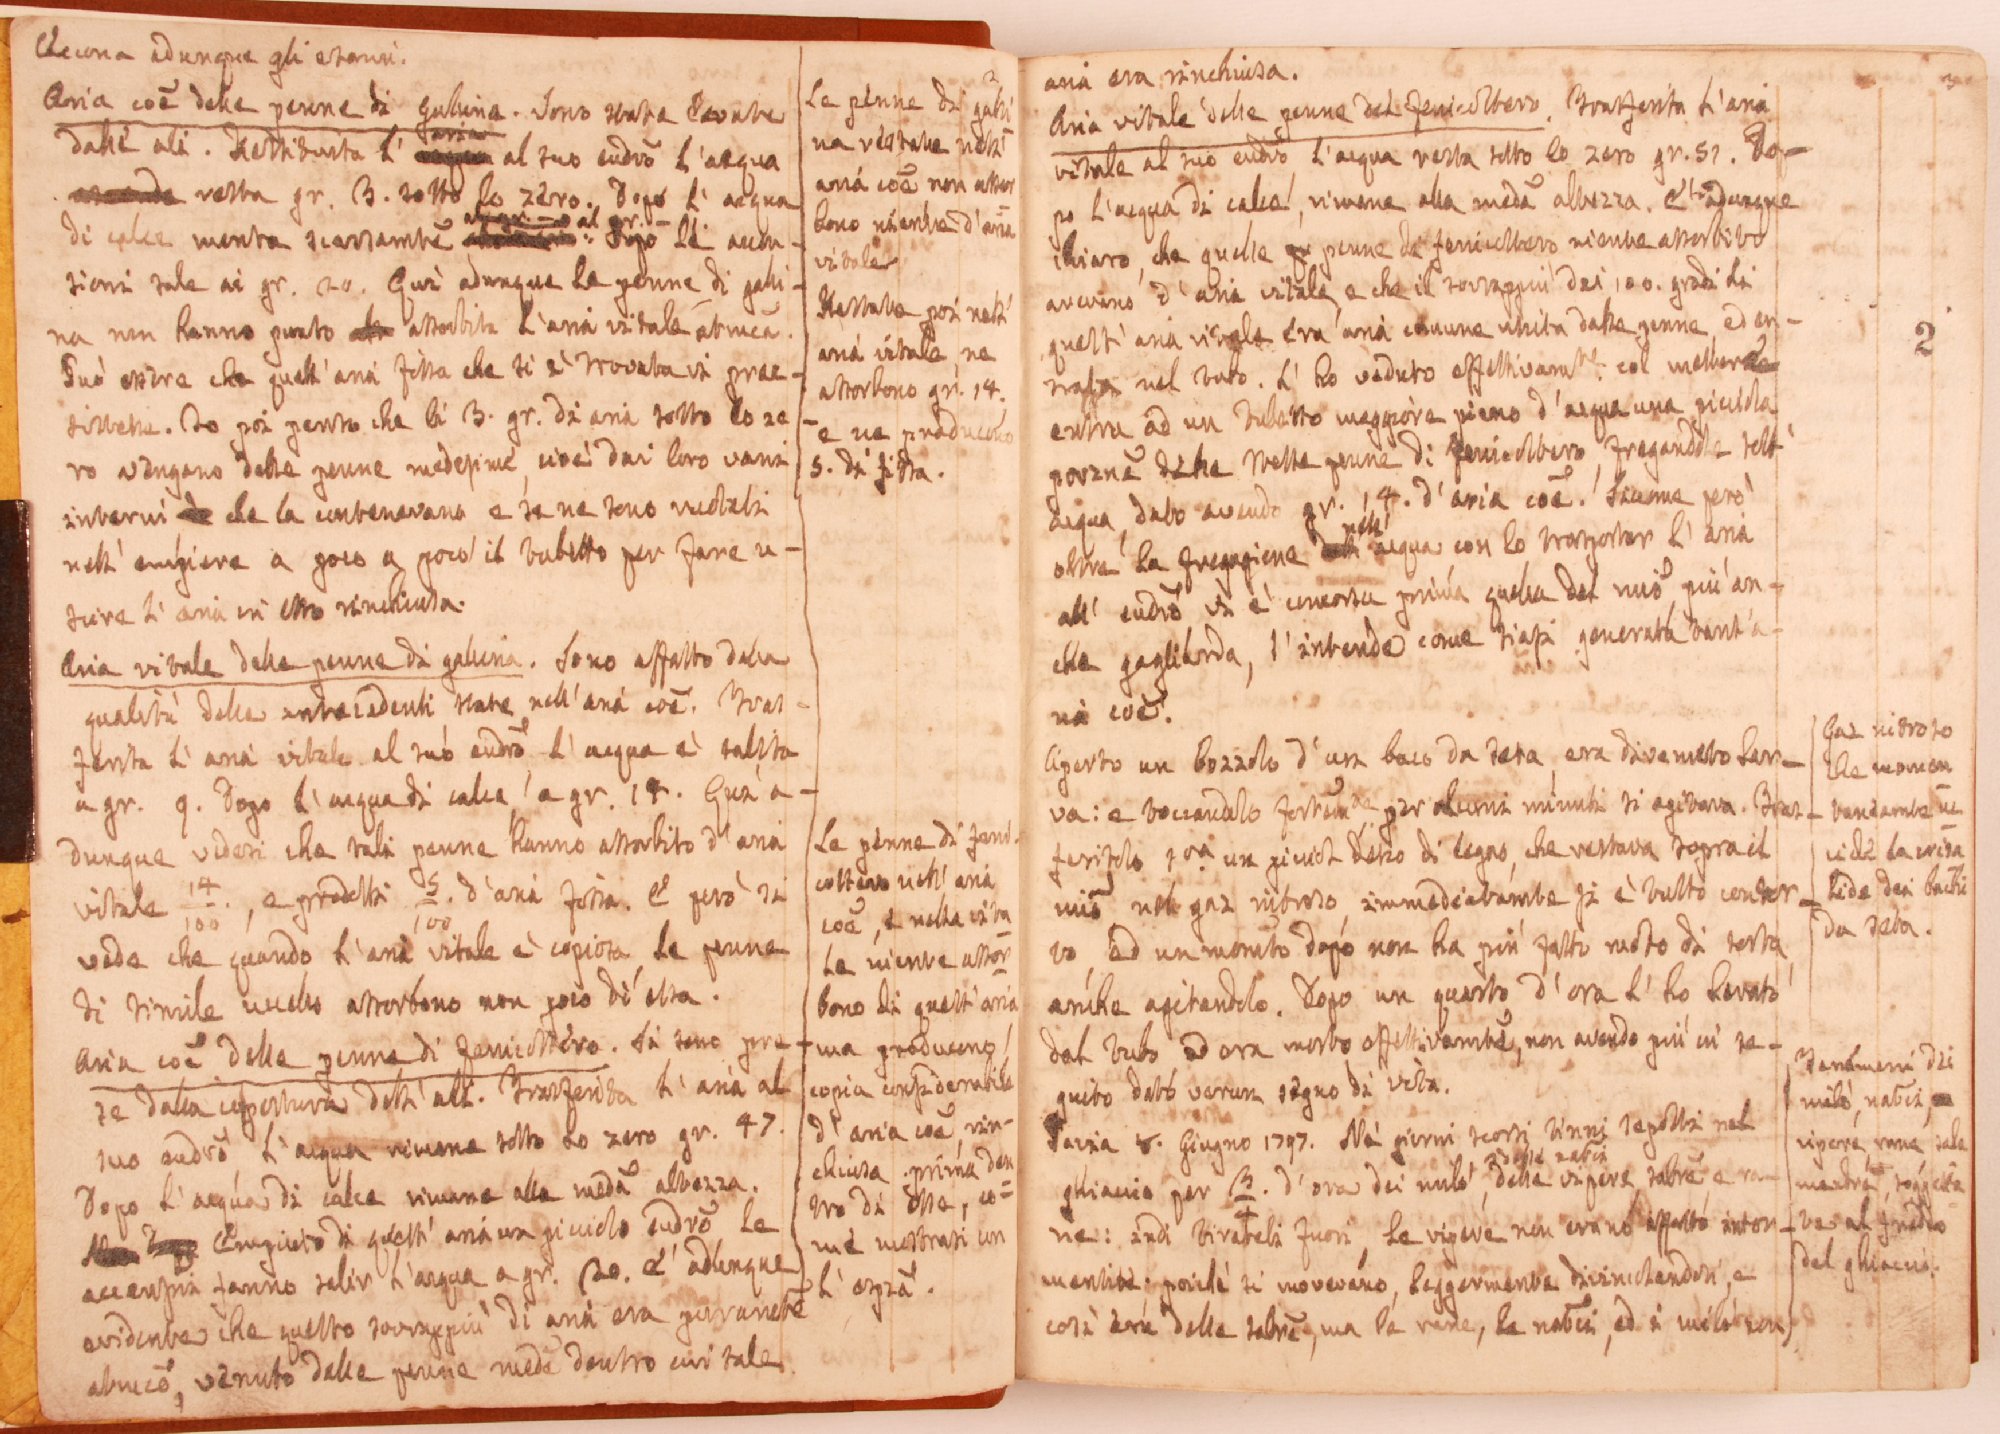 Eccoua adunque gli esami.
Aria coē delle penne di gallina. Sono state levate
dall' ali. Restituita l' aria al suo eudrō l' acqua
resta gr. 3. sotto lo zero. Dopo l' acqua
di calce monta scarsambē al gr. Dopo le accen-
sioni sale ai gr. 20. Qui adunque le penne di galli-
na non hanno punto assorbita l' aria vitale
Può essere che quell' aria fissa che si è trovata vi pree-
sistesse. Io poi penso che li 3. gr. di aria sotto lo ze
ro vengano dalle penne medesime, cioè dai loro vani
interni che la contenevano e se ne sono vuotati
nell' empiere a poco a poco il tubetto per fare u-
scire l' aria in esso rinchiusa.
Aria vitale delle penne di gallina. Sono affatto della
qualità delle antecedenti state nell' aria coē. Tras-
ferita l' aria vitale al suo eudrō l' acqua è salita
a gr. 9. Dopo l' acqua di calce a gr. 14. Qui a-
dunque vedesi che tali penne hanno assorbito d' aria
vitale 14/100., e prodotti 5/100. d' aria fissa. E però si
vede che quando l' aria vitale è copiosa le penne
di simile uccello assorbono non poco di essa.
Aria coē delle penne di fenicottero. Si sono pre-
se dalla copertura dell' ali. Trasferita l' aria al
suo eudrō l' acqua rimane sotto lo zero gr. 47.
Dopo l' acqua di calce rimane alla medā altezza.
Empiuto di quest' aria un picciolo eudrō le
accensioni fanno salir l' acqua a gr. 20. E' adunque
evidente che questo sovrappiù di aria era puramētē
venuto dalle penne medē dentro cui tale
2
Le penne di galli
na restate nell'
aria coē non assor
bono niente d' aria
vitale
Restate poi nell'
aria vitale ne
assorbono gr. 14.
e ne producono
5. di fissa.
Le penne di feni-
cottero nell' aria
coē, e nella vita
le niente assor
bono di quest' aria
ma producono
copia considerabile
d' aria coē, rin-
chiusa prima den
tro di esse, co-
me mostrasi con
l' espzā.
aria era rinchiusa.
Aria vitale delle penne del fenicottero. Trasferita l' aria
vitale al suo eudrō l' acqua resta sotto lo zero gr. 51. Do-
po l' acqua di calce, rimane alla medā altezza. E' adunque
chiaro, che quelle penne di fenicottero niente assorbito
avevano d' aria vitale, e che il sovrappiù dei 100. gradi di
quest' aria vitale era aria comune uscita dalle penne ed en-
trata nel tubo. L' ho veduto effettivamte col mettere
entro ad un tubetto maggiore pieno d' acqua una picciola
porznē delle stesse penne di fenicottero, fregandole sott'
acqua, dato avendo gr. 14. d' aria coē. Siccome però
oltre la fregagione nell' acqua, con lo trasportar l' aria
all' eudrō vi è concorsa prima quella del più an-
che gagliarda, s' intende come siasi generata tant' a-
ria coē.
Aperto un bozzolo d' un baco da seta, era divenuto lar-
va: e toccandolo fortemte per alcuni minuti si agitava. Tras-
feritolo sopra un picciol desco di legno, che restava sopra il
nel gaz nitroso, immediatamte si è tutto contor-
to, ed un momēto dopo non ha più fatto moto di sorta
anche agitandolo. Dopo un quarto d' ora l' ho levato
dal tubo ed era morto effettivamtē, non avendo più in se-
guito dato verun segno di vita.
Pavia 8. Giugno 1797. Ne' giorni scorsi tenni sepolti nel
ghiaccio per 3/4. d' ora dei miló, delle vipere, salrē e ra-
ne: indi tirateli fuori, le vipere non erano affatto intor-
mentite: poichè si movevano, leggermente divincolandosi, e
così era delle salrē, ma le rane, le natrici, ed i miló non
3
2
Gaz nitroso
che momen
taneamente uc
cide la crisa
lide dei bachi
da seta.
Fenomeni dei
miló, natrici,
vipere, rane, sala
mandrē, soggetta
te al freddo
del ghiaccio.